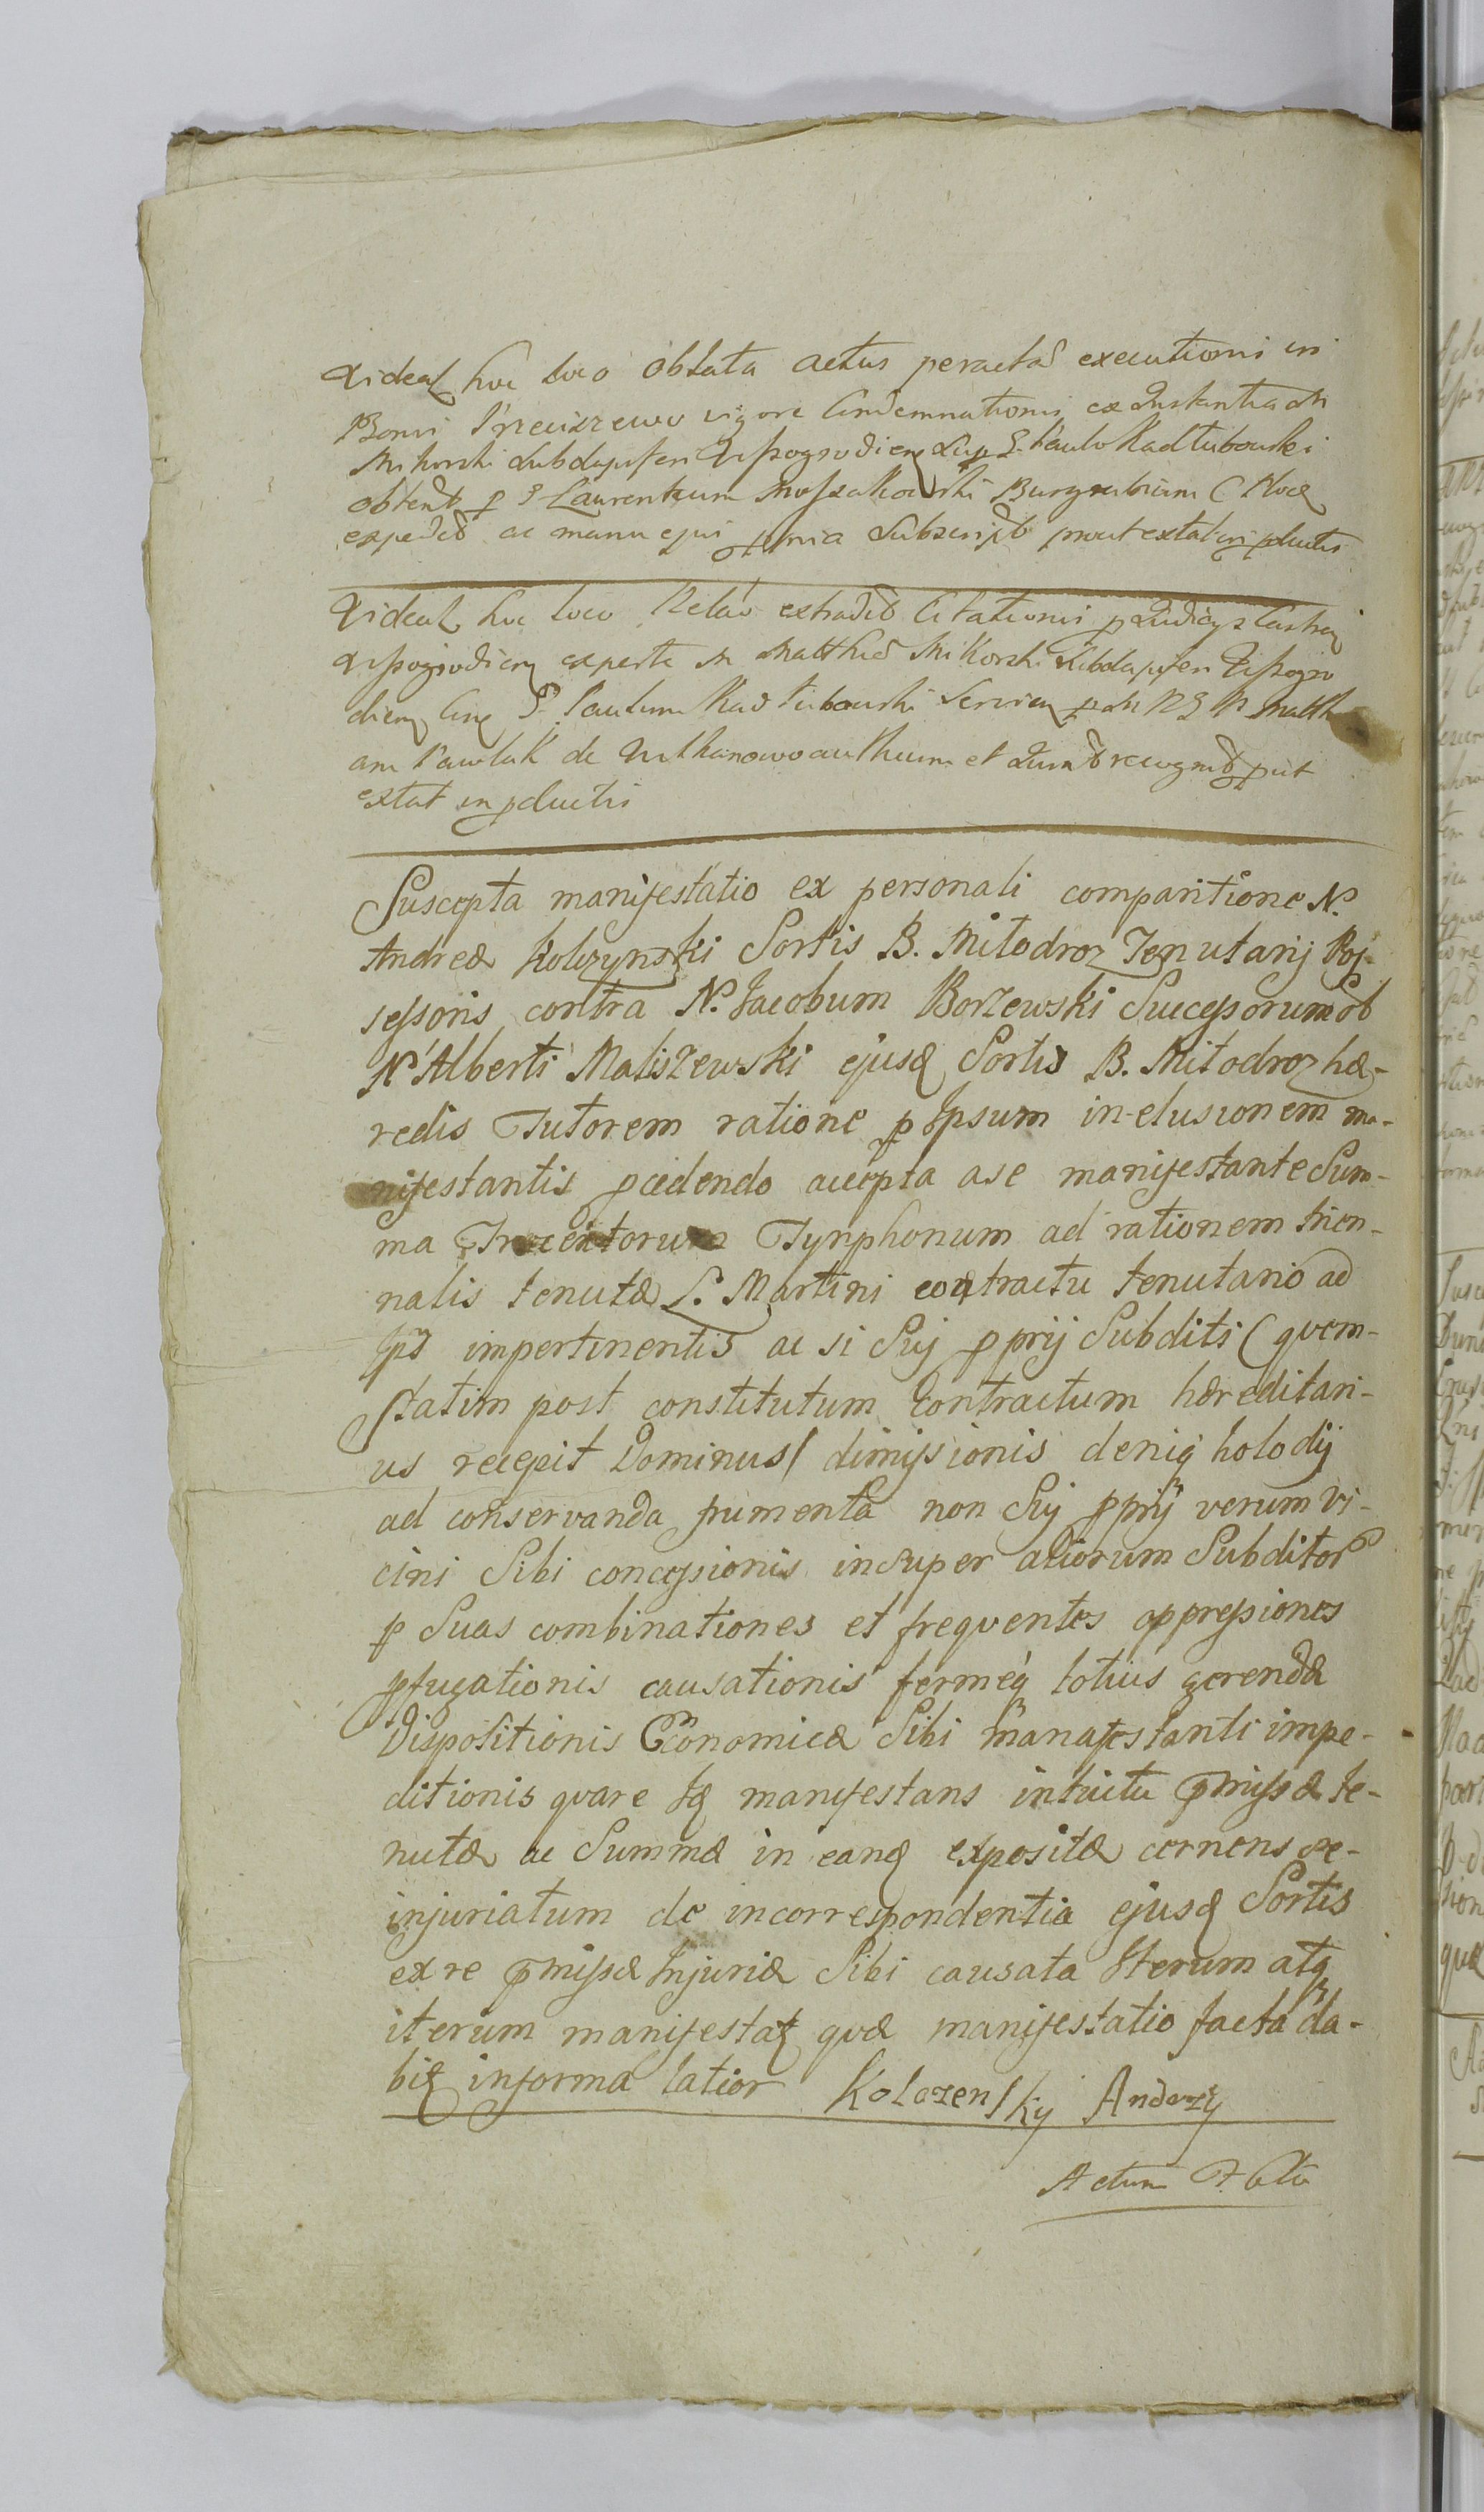 Videat hoc loco oblata actus peractae executionis in
Bonis vigore Condemnationis ex Instantia M
Mikorski Subdapiferi Vissogrodien Kadłubowski
obtent p G Laurentium Mossakowski Burgrabium C Ploc
exped ac manu ejus ppria Subscript prout extat in pductis
Videat hoc loco Relão extradit Citationis p Judicijs Castren
Vissogrodien ex parte M Matthiae Mikorski Subdapiferi Vissogro
dien Kadłubowski Servien
am Pawlak de authum et Jurat recognit put
extat in pductis
Suscepta manifestatio ex personali comparitione N.
Andreæ Kolczynski Sortis B. Miłodroz Tenutarij Pos-
sessoris contra N. Jacobum Borzewski Successorum ol
N Alberti Maliszewski ejusq Sortis B. Miłodroz hæ-
redis Tutorem ratione p Ipsum in elusionem ma-
nifestantis pcedendo accepta a se manifestante Sum-
ma Trecentorum Tynphonum ad rationem trien-
nalis tenutæ S. Martini contractu tenutario ad
impertinentis ac si Sui pprij Subditi (quem-
statim post constitutum Contractum hæreditari-
us recepit Dominus/ dimissionis deniq holodij
ad conservanda frumenta non Sui pprij verum vi-
cini Sibi concessionis insuper aliorum Subditor
p Suas combinationes et frequentes oppressiones
pfugationis causationis fermeq totius gerendæ
Dispositionis Œconomicæ Sibi manafestanti impe-
ditionis quare Iq manifestans intuitu pmissæ te-
nutæ ac Summæ in eanq expositæ cernens se-
injuriatum de incorrespondentia ejusq Sortis
ex re pmissæ Injuriæ Sibi causata Iterum atq
iterum manifestat quæ manifestatio facta da-
bit informa latior Kolczensky Andrzy
Actum